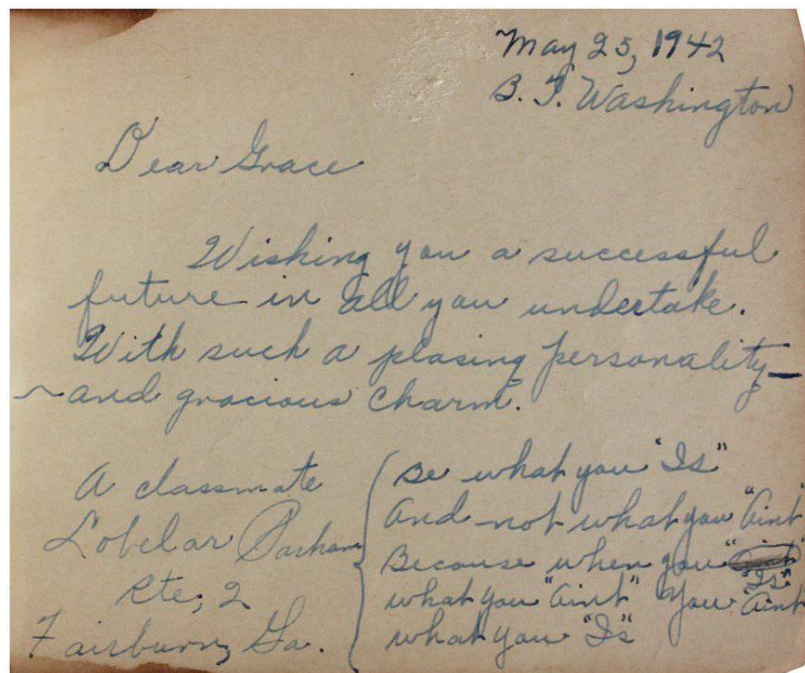 May 25, 1942
B. T. Washington
Dear Grace
Wishing you a successful
future in all you undertake.
With such a plasing personality
and gracious charm.
A classmate
Lobelar Parham
Rte, 2
Fairburn, Ga.
Be what you "Is"
And not what you "Aint"
Because when you "Is"
what you "Aint" You "Aint
what you "Is"